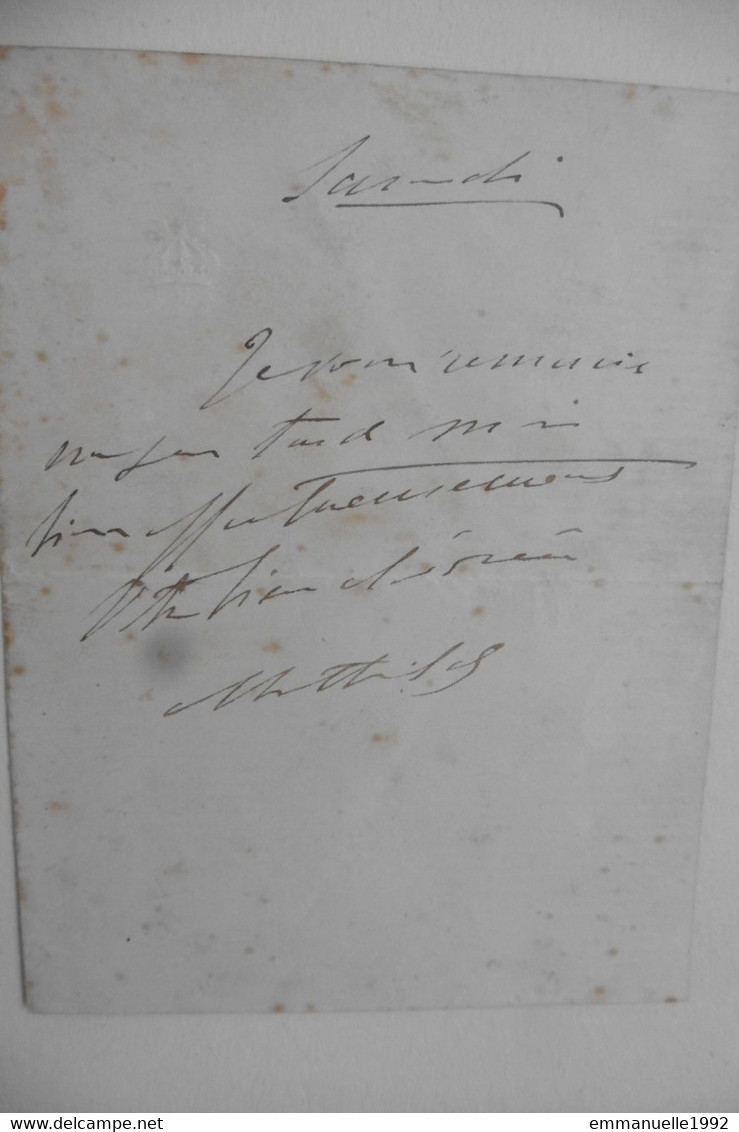 Samedi
Je vous remercie
un peu tard mais
bien affectueusement
Votre bien dévouée
Mathilde
delcampe.net
emmanuelle1992